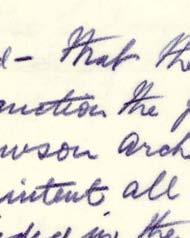 d - that the
anction the p
wson arch
intent all
ded in the